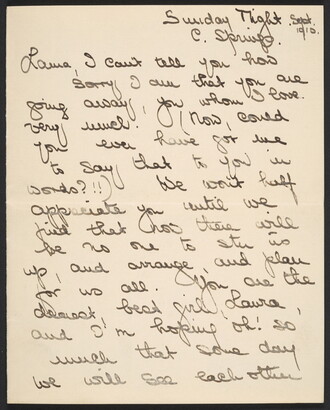 Sunday Night, Sept.
C. Springs. 1910.
Laura, I can't tell you how
sorry I am that you are
going away, you whom I love.
very much. (Now, could
you ever have got me
to say that to you in
words?!!) We won't half
appreciate you until we
find that now there will
be no one to stir us
up, and arrange, and plan
for us all. You are the
dearest, best girl, Laura,
and I'm hoping oh! so
much that some day
we will see each other